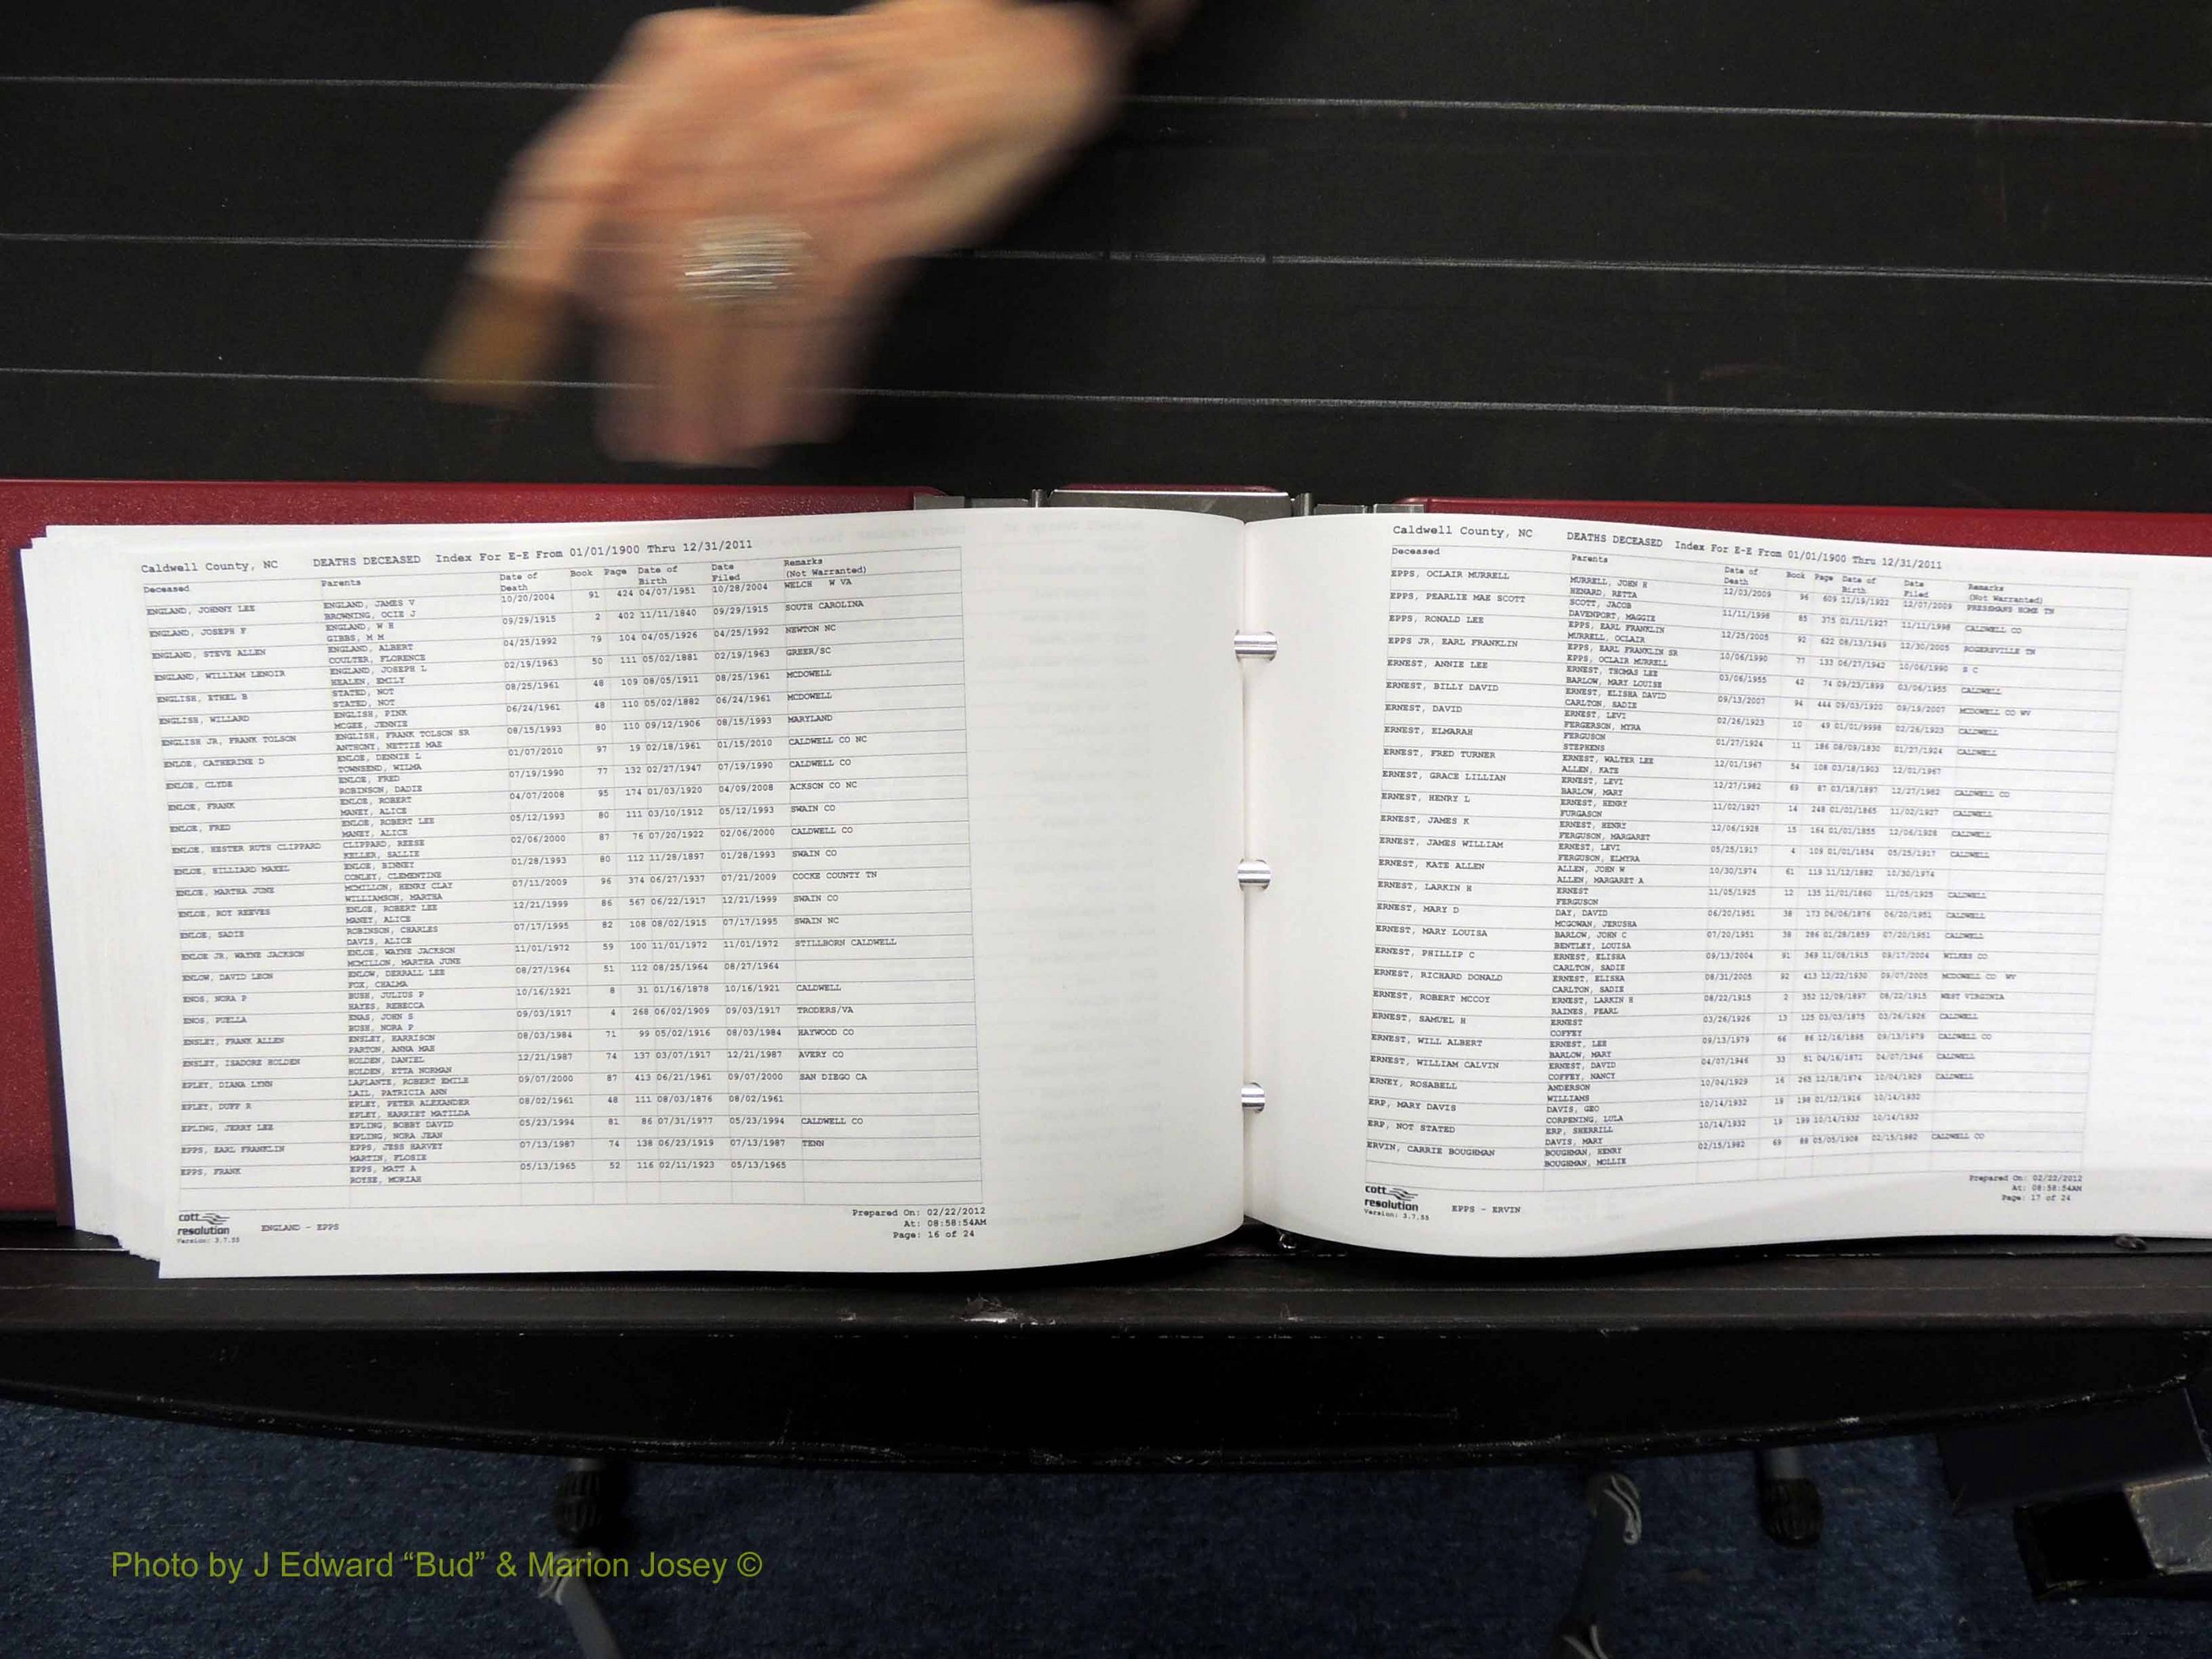 Caldwell County, NC DEATHS DECEASED Index For E-E From 01/01/1900 Thru 12/31/2011
Deceased Parents Date of Death Book Page Date of Birth Date Filed Remarks (Not Warranted)
ENGLAND, JOHNNY LEE ENGLAND, JAMES V 10/20/2004 91 424 04/07/1951 10/28/2004 WELCH W VA
BROWNING, OCIE J
ENGLAND, JOSEPH F ENGLAND, W H 09/29/1915 2 402 11/11/1840 09/29/1915 SOUTH CAROLINA
GIBBS, M M
ENGLAND, STEVE ALLEN ENGLAND, ALBERT 04/25/1992 79 104 04/05/1926 04/25/1992 NEWTON NC
COULTER, FLORENCE
ENGLAND, WILLIAM LENOIR ENGLAND, JOSEPH L 02/19/1963 50 111 05/02/1881 02/19/1963 GREER/SC
HEALEN, EMILY
ENGLISH, ETHEL B STATED, NOT 08/25/1961 48 109 08/05/1911 08/25/1961 MCDOWELL
STATED, NOT
ENGLISH, WILLARD ENGLISH, PINK 06/24/1961 48 110 05/02/1882 06/24/1961 MCDOWELL
MCGEE, JENNIE
ENGLISH JR, FRANK TOLSON ENGLISH, FRANK TOLSON SR 08/15/1993 80 110 09/12/1906 08/15/1993 MARYLAND
ANTHONY, NETTIE MAE
ENLOE, CATHERINE D ENLOE, DENNIE L 01/07/2010 97 19 02/18/1961 01/15/2010 CALDWELL CO NC
TOWNSEND, WILMA
ENLOE, CLYDE ENLOE, FRED 07/19/1990 77 132 02/27/1947 07/19/1990 CALDWELL CO
ROBINSON, DADIE
ENLOE, FRANK ENLOE, ROBERT 04/07/2008 95 174 01/03/1920 04/09/2008 ACKSON CO NC
MANEY, ALICE
ENLOE, FRED ENLOE, ROBERT LEE 05/12/1993 80 111 03/10/1912 05/12/1993 SWAIN CO
MANEY, ALICE
ENLOE, HESTER RUTH CLIPPARD CLIPPARD, REESE 02/06/2000 87 76 07/20/1922 02/06/2000 CALDWELL CO
KELLER, SALLIE
ENLOE, HILLIARD MAXEL ENLOE, BINNEY 01/28/1993 80 112 11/28/1897 01/28/1993 SWAIN CO
CONLEY, CLEMENTINE
ENLOE, MARTHA JUNE MCMILLON, HENRY CLAY 07/11/2009 96 374 06/27/1937 07/21/2009 COCKE COUNTY TN
WILLIAMSON, MARTHA
ENLOE, ROY REEVES ENLOE, ROBERT LEE 12/21/1999 86 567 06/22/1917 12/21/1999 SWAIN CO
MANEY, ALICE
ENLOE, SADIE ROBINSON, CHARLES 07/17/1995 82 108 08/02/1915 07/17/1995 SWAIN NC
DAVIS, ALICE
ENLOE JR, WAYNE JACKSON ENLOE, WAYNE JACKSON 11/01/1972 59 100 11/01/1972 11/01/1972 STILLBORN CALDWELL
MCMILLON, MARTHA JUNE
ENLOW, DAVID LEON ENLOW, DERRALL LEE 08/27/1964 51 112 08/25/1964 08/27/1964
FOX, CHALMA
ENOS, NORA P BUSH, JULIUS P 10/16/1921 8 31 01/16/1878 10/16/1921 CALDWELL
HAYES, REBECCA
ENOS, PUELLA ENAS, JOHN S 09/03/1917 4 268 06/02/1909 09/03/1917 TRODERS/VA
BUSH, NORA P
ENSLEY, FRANK ALLEN ENSLEY, HARRISON 08/03/1984 71 99 05/02/1916 08/03/1984 HAYWOOD CO
PARTON, ANNA MAE
ENSLEY, ISADORE HOLDEN HOLDEN, DANIEL 12/21/1987 74 137 03/07/1917 12/21/1987 AVERY CO
HOLDEN, ETTA NORMAN
EPLEY, DIANA LYNN LAPLANTE, ROBERT EMILE 09/07/2000 87 413 06/21/1961 09/07/2000 SAN DIEGO CA
LAIL, PATRICIA ANN
EPLEY, DUFF R EPLEY, PETER ALEXANDER 08/02/1961 48 111 08/03/1876 08/02/1961
EPLEY, HARRIET MATILDA
EPLING, JERRY LEE EPLING, BOBBY DAVID 05/23/1994 81 86 07/31/1977 05/23/1994 CALDWELL CO
EPLING, NORA JEAN
EPPS, EARL FRANKLIN EPPS, JESS HARVEY 07/13/1987 74 138 06/23/1919 07/13/1987 TENN
MARTIN, FLOSIE
EPPS, FRANK EPPS, MATT A 05/13/1965 52 116 02/11/1923 05/13/1965
ROYSE, MORIAH
cott resolution Version: 3.7.55 ENGLAND - EPPS
Prepared On: 02/22/2012
At: 08:58:54AM
Page: 16 of 24
Caldwell County, NC DEATHS DECEASED Index For E-E From 01/01/1900 Thru 12/31/2011
Deceased Parents Date of Death Book Page Date of Birth Date Filed Remarks (Not Warranted)
EPPS, OCLAIR MURRELL MURRELL, JOHN H 12/03/2009 96 609 11/19/1922 12/07/2009 PRESSMANS HOME TN
HENARD, RETTA
EPPS, PEARLIE MAE SCOTT SCOTT, JACOB 11/11/1998 85 375 01/11/1927 11/11/1998 CALDWELL CO
DAVENPORT, MAGGIE
EPPS, RONALD LEE EPPS, EARL FRANKLIN 12/25/2005 92 622 08/13/1949 12/30/2005 ROGERSVILLE TN
MURRELL, OCLAIR
EPPS JR, EARL FRANKLIN EPPS, EARL FRANKLIN SR 10/06/1990 77 133 06/27/1942 10/06/1990 S C
EPPS, OCLAIR MURRELL
ERNEST, ANNIE LEE ERNEST, THOMAS LEE 03/06/1955 42 74 09/23/1899 03/06/1955 CALDWELL
BARLOW, MARY LOUISE
ERNEST, BILLY DAVID ERNEST, ELISHA DAVID 09/13/2007 94 444 09/03/1920 09/19/2007 MCDOWELL CO WV
CARLTON, SADIE
ERNEST, DAVID ERNEST, LEVI 02/26/1923 10 49 01/01/9998 02/26/1923 CALDWELL
FERGERSON, MYRA
ERNEST, ELMARAH FERGUSON 01/27/1924 11 186 08/09/1830 01/27/1924 CALDWELL
STEPHENS
ERNEST, FRED TURNER ERNEST, WALTER LEE 12/01/1967 54 108 03/18/1903 12/01/1967
ALLEN, KATE
ERNEST, GRACE LILLIAN ERNEST, LEVI 12/27/1982 69 87 03/18/1897 12/27/1982 CALDWELL CO
BARLOW, MARY
ERNEST, HENRY L ERNEST, HENRY 11/02/1927 14 248 01/01/1865 11/02/1927 CALDWELL
FURGASON
ERNEST, JAMES K ERNEST, HENRY 12/06/1928 15 164 01/01/1855 12/06/1928 CALDWELL
FERGUSON, MARGARET
ERNEST, JAMES WILLIAM ERNEST, LEVI 05/25/1917 4 109 01/01/1854 05/25/1917 CALDWELL
FERGUSON, ELMYRA
ERNEST, KATE ALLEN ALLEN, JOHN W 10/30/1974 61 119 11/12/1882 10/30/1974
ALLEN, MARGARET A
ERNEST, LARKIN H ERNEST 11/05/1925 12 135 11/01/1860 11/05/1925 CALDWELL
FERGUSON
ERNEST, MARY D DAY, DAVID 06/20/1951 38 173 06/06/1876 06/20/1951 CALDWELL
MCGOWAN, JERUSHA
ERNEST, MARY LOUISA BARLOW, JOHN C 07/20/1951 38 286 01/28/1859 07/20/1951 CALDWELL
BENTLEY, LOUISA
ERNEST, PHILLIP C ERNEST, ELISHA 09/13/2004 91 369 11/08/1915 09/17/2004 WILKES CO
CARLTON, SADIE
ERNEST, RICHARD DONALD ERNEST, ELISHA 08/31/2005 92 413 12/22/1930 09/07/2005 MCDOWELL CO WV
CARLTON, SADIE
ERNEST, ROBERT MCCOY ERNEST, LARKIN H 08/22/1915 2 352 12/09/1897 08/22/1915 WEST VIRGINIA
RAINES, PEARL
ERNEST, SAMUEL H ERNEST 03/26/1926 13 125 03/03/1875 03/26/1926 CALDWELL
COFFEY
ERNEST, WILL ALBERT ERNEST, LEE 09/13/1979 66 86 12/16/1895 09/13/1979 CALDWELL CO
BARLOW, MARY
ERNEST, WILLIAM CALVIN ERNEST, DAVID 04/07/1946 33 51 04/16/1871 04/07/1946 CALDWELL
COFFEY, NANCY
ERNEY, ROSABELL ANDERSON 10/04/1929 16 263 12/18/1874 10/04/1929 CALDWELL
WILLIAMS
ERP, MARY DAVIS DAVIS, GEO 10/14/1932 19 198 01/12/1916 10/14/1932
CORPENING, LULA
ERP, NOT STATED ERP, SHERRILL 10/14/1932 19 199 10/14/1932 10/14/1932
DAVIS, MARY
ERVIN, CARRIE BOUGHMAN BOUGHMAN, HENRY 02/15/1982 69 88 05/05/1908 02/15/1982 CALDWELL CO
BOUGHMAN, MOLLIE
cott resolution Version: 3.7.55 EPPS - ERVIN
Prepared On: 02/22/2012
At: 08:58:54AM
Page: 17 of 24
Photo by J Edward “Bud” & Marion Josey ©